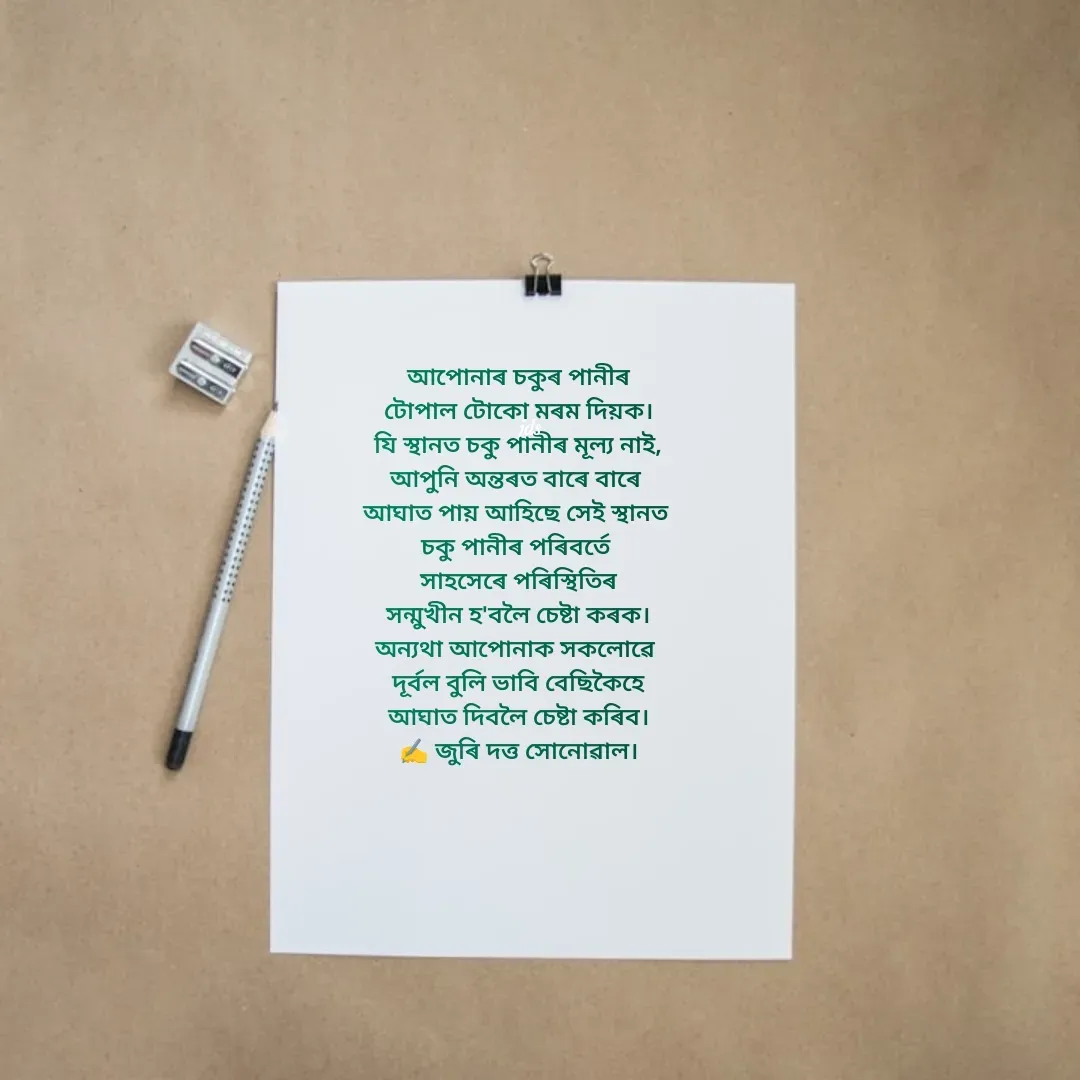 আপোনাৰ চকুৰ পানীৰ
টোপাল টোকো মৰম দিয়ক।
যি স্থানত চকু পানীৰ মূল্য নাই,
আপুনি অন্তৰত বাৰে বাৰে
আঘাত পায় আহিছে সেই স্থানত
চকু পানীৰ পৰিবৰ্তে
সাহসেৰে পৰিস্থিতিৰ
সন্মুখীন হ'বলৈ চেষ্টা কৰক।
অন্যথা আপোনাক সকলোৱে
দূৰ্বল বুলি ভাবি বেছিকৈহে
আঘাত দিবলৈ চেষ্টা কৰিব।
✍️ জুৰি দত্ত সোনোৱাল।